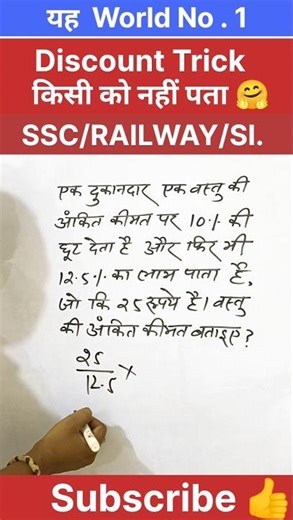 यह World No . 1
Discount Trick
किसी को नहीं पता 🤗
SSC/RAILWAY/SI.
एक दुकानदार एक वस्तु की
अंकित कीमत पर 10% की
छूट देता है और फिर भी
12.5% का लाभ पाता है,
जो कि 25 रुपये है। वस्तु
की अंकित कीमत बताइए?
25
12.5 ×
Subscribe 👍